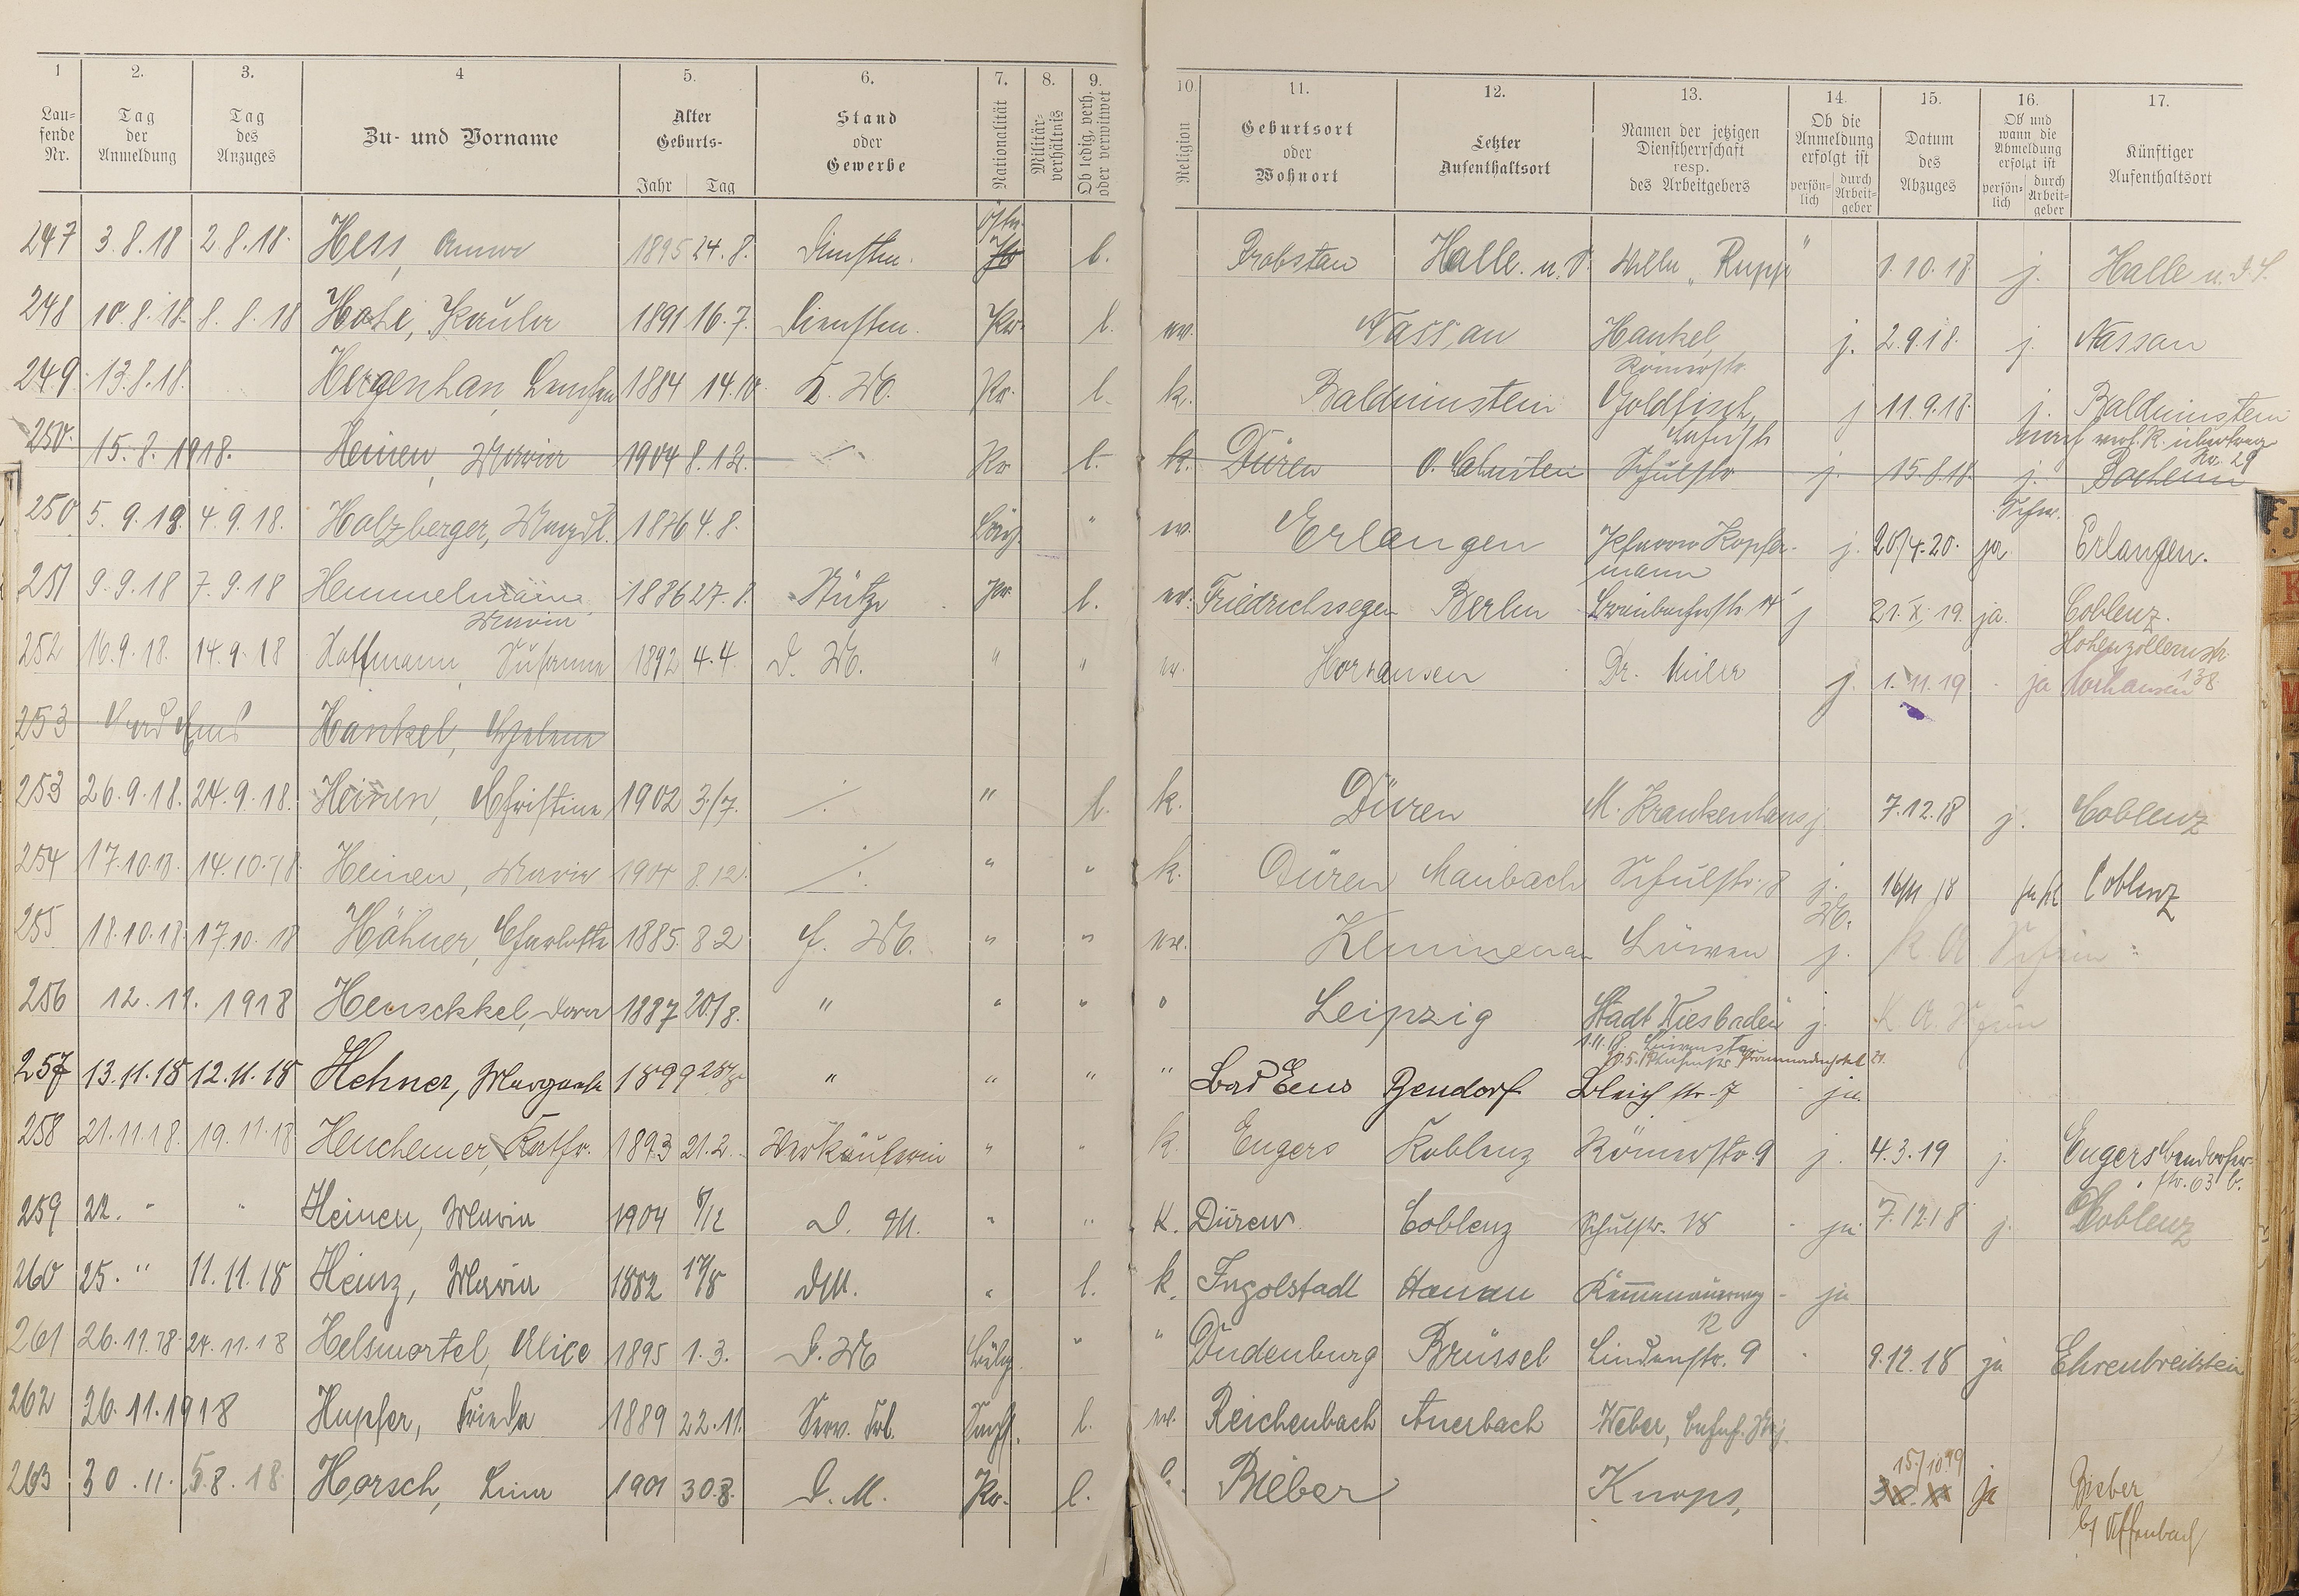 1 2. 3. 4 5. 6. 7. 8. 9. 10 11. 12. 13. 14. 15. 16. 17.
Lau-
fende
Nr.
Tag
der
Anmeldung
Tag
des
Anzuges
Zu- und Vorname
Alter
Geburts-
Jahr Tag
Stand
oder
Gewerbe
Nationalität
Militär-
verhältnis
Ob ledig, verh.
oder verwitwet
Religion
Geburtsort
oder
Wohnort
Letzter
Aufenthaltsort
Namen der jetzigen
Dienstherrschaft
resp.
des Arbeitgebers
Ob die
Anmeldung
erfolgt ist
persön-
lich
durch
Arbeit-
geber
Datum
des
Abzuges
Ob und
wann die
Abmeldung
erfolgt ist
persön-
lich
durch
Arbeit-
geber
Künftiger
Aufenthaltsort
247 3.8.18 2.8.18. Hess, Anna 1895 24.8. Dienstm. l. Halle Rupp " 1.10.18 j. Halle
248 10.8.18. 8.8.18 1891 16.7. Dienstm. Pr. l. Nassau Hankel j. 2.9.18. j. Nassau
Römerstr.
249. 13.8.18. Hergenhan, 1884 14.10. Pr. l. k. Balduinstein Goldfisch, j 11.9.18. j. Balduinstein
250. 15.8.1918. Heinen, Maria 1904 8.12. Pr. l. k. Düren Schulstr j. 15.8.18. j.
No. 29
250 5.9.18. 4.9.18. Holzberger, Magdl. 1876 4.8. " Erlangen Pfarrer Kopfer- j. 20/4.20. ja Erlangen.
mann
251 9.9.18 7.9.18 Hemmelmann, 1886 27.8. Stütze Pr. l. Friedrichsegen Berlin j 21.X.19. ja. Coblenz.
Maria
Hohenzollernstr.
252 16.9.18. 14.9.18 Hoffmann, Susanna 1892 4.4. D. M. " " Horhausen Dr. Müller j. 1.11.19 ja Horhausen
138
253 Bad Ems Hankel, Helene
253 26.9.18. 24.9.18. Heinen, Christine 1902 3/7. " l. k. Düren M. Krankenhaus j. 7.12.18 j. Coblenz
254 17.10.18. 14.10.18. Heinen, Maria 1904 8.12. " " k. Düren Maubach Schulstr. 18 j. 16/11 18 Coblenz
255 18.10.18 17.10.18 Höhner, Charlotte 1885. 8 2 " " Kemmenau Löwen j.
256 12.11.1918 Henschkel, Dora 1887 20/8. " " " " Leipzig Stadt Wiesbaden j.
257 13.11.18 12.11.18 Hehner, Margarete 1899 " " " " Bad Ems Bendorf Bleichstr. 7 ja.
258 21.11.18. 19.11.18 Kathr. 1893 21.2. Verkäuferin " " k. Engers Koblenz Römerstr. 9 j. 4.3.19 j. Engers Bendorfer-
str. 63 b.
259 22. " " Heinen, Maria 1904 8/12 D. M. " " k. Düren Coblenz Schulstr. 18 ja. 7.12.18 j. Coblenz
260 25. " 11.11.18 Heinz, Maria 1882 17/8 DM. " l. k. Ingolstadt Hanau Kemmenauerweg ja
12
261 26.11.18. 24.11.18 Helsmortel, Alice 1895 1.3. D. M Belg. " " Dudenburg Brüssel Lindenstr. 9 9.12.18 ja Ehrenbreitstein
262 26.11.1918 Hupfer, Frieda 1889 22.11. Serv. Frl. l. Reichenbach Auerbach Weber,
263 30.11. 5.8.18. Horsch, Lina 1901 30.8. D. M. Pr. l. Bieber Knops, 15./10.19 ja Bieber
b/ Offenbach